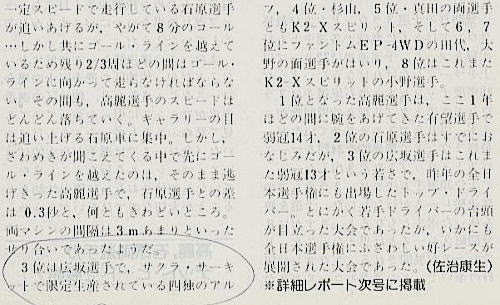 一定スピードで走行している石原選手
が追いあげるが，やがて8分のコール
…しかし共にゴール・ラインを越えて
いるため残り2/3周ほどの間はゴール・
ラインに向かって走らなければならな
い。その間も，高麗選手のスピードは
どんどん落ちていく。ギャラリーの目
は追い上げる石原車に集中。しかし，
ざわめきが聞こえてくる中で先にゴー
ル・ラインを越えたのは，そのまま逃
げきった高麗選手で，石原選手との差
は0.3秒と，何ともきわどいところ。
両マシンの間隔は3mあまりといった
せり合いであったようだ。
3位は広坂選手で，サクラ・サーキ
ットで限定生産されている四独のアル
フ，4位・杉山，5位・真田の両選手
ともK2-Xスピリット，そして6，7
位にファントムEP-4WDの田代，大
野の両選手がはいり，8位はこれまた
K2-Xスピリットの小野選手。
1位となった高麗選手は，ここ1年
ほどの間に腕をあげてきた有望選手で
弱冠14才，2位の石原選手はすでにお
なじみだが，3位の広坂選手はこれま
た弱冠13才という若さで，昨年の全日
本選手権にも出場したトップ・ドライ
バー。とにかく若手ドライバーの台頭
が目立った大会であったが，いかにも
全日本選手権にふさわしい好レースが
展開された大会であった。(佐治康生)
※詳細レポート次号に掲載